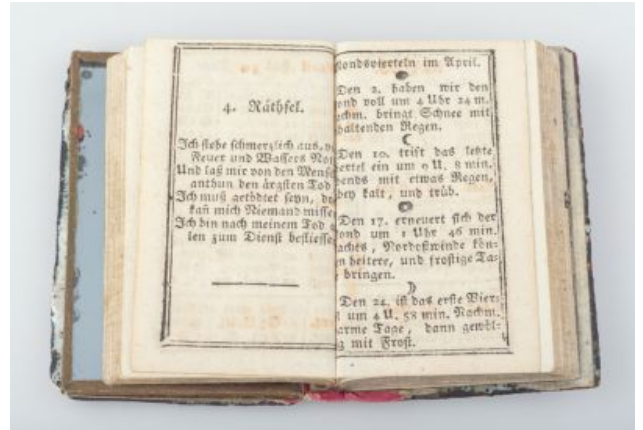 4. Räthsel.
Ich stehe schmerzlich aus,
Feuer und Wassers
Und laß mir von den
anthun den ärgsten Tod
Ich muß getödtet seyn,
kañ mich Niemand
Ich bin nach meinem Tod
len zum Dienst
im April.
Den 2. haben wir den
voll um 4 Uhr 24 m.
bringt Schnee mit
Regen.
Den 10. trift das letzte
ein um 9 U. 8 min.
mit etwas Regen,
kalt, und trüb.
Den 17. erneuert sich der
um 1 Uhr 46 min.
Nordostwinde kön-
heitere, und frostige Ta-
bringen.
Den 24. ist das erste Vier-
um 4 U. 58 min. Nachm.
Tage, dann gewöl-
mit Frost.